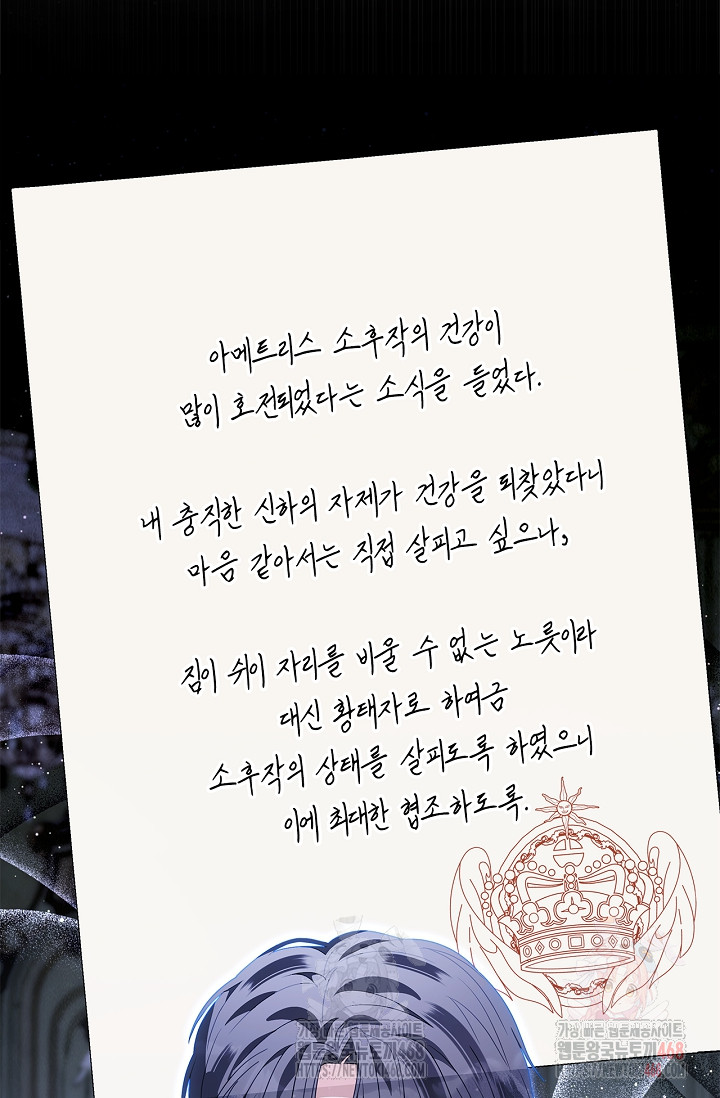 아메트리스 소후작의 건강이
많이 호전되었다는 소식을 들었다.
내 충직한 신하의 자제가 건강을 되찾았다니
마음 같아서는 직접 살피고 싶으나,
짐이 쉬이 자리를 비울 수 없는 노릇이라
대신 황태자로 하여금
소후작의 상태를 살피도록 하였으니
이에 최대한 협조하도록.
가장 빠른 웹툰제공사이트
웹툰왕국뉴토끼468
가장 빠른 웹툰제공사이트
웹툰왕국뉴토끼468